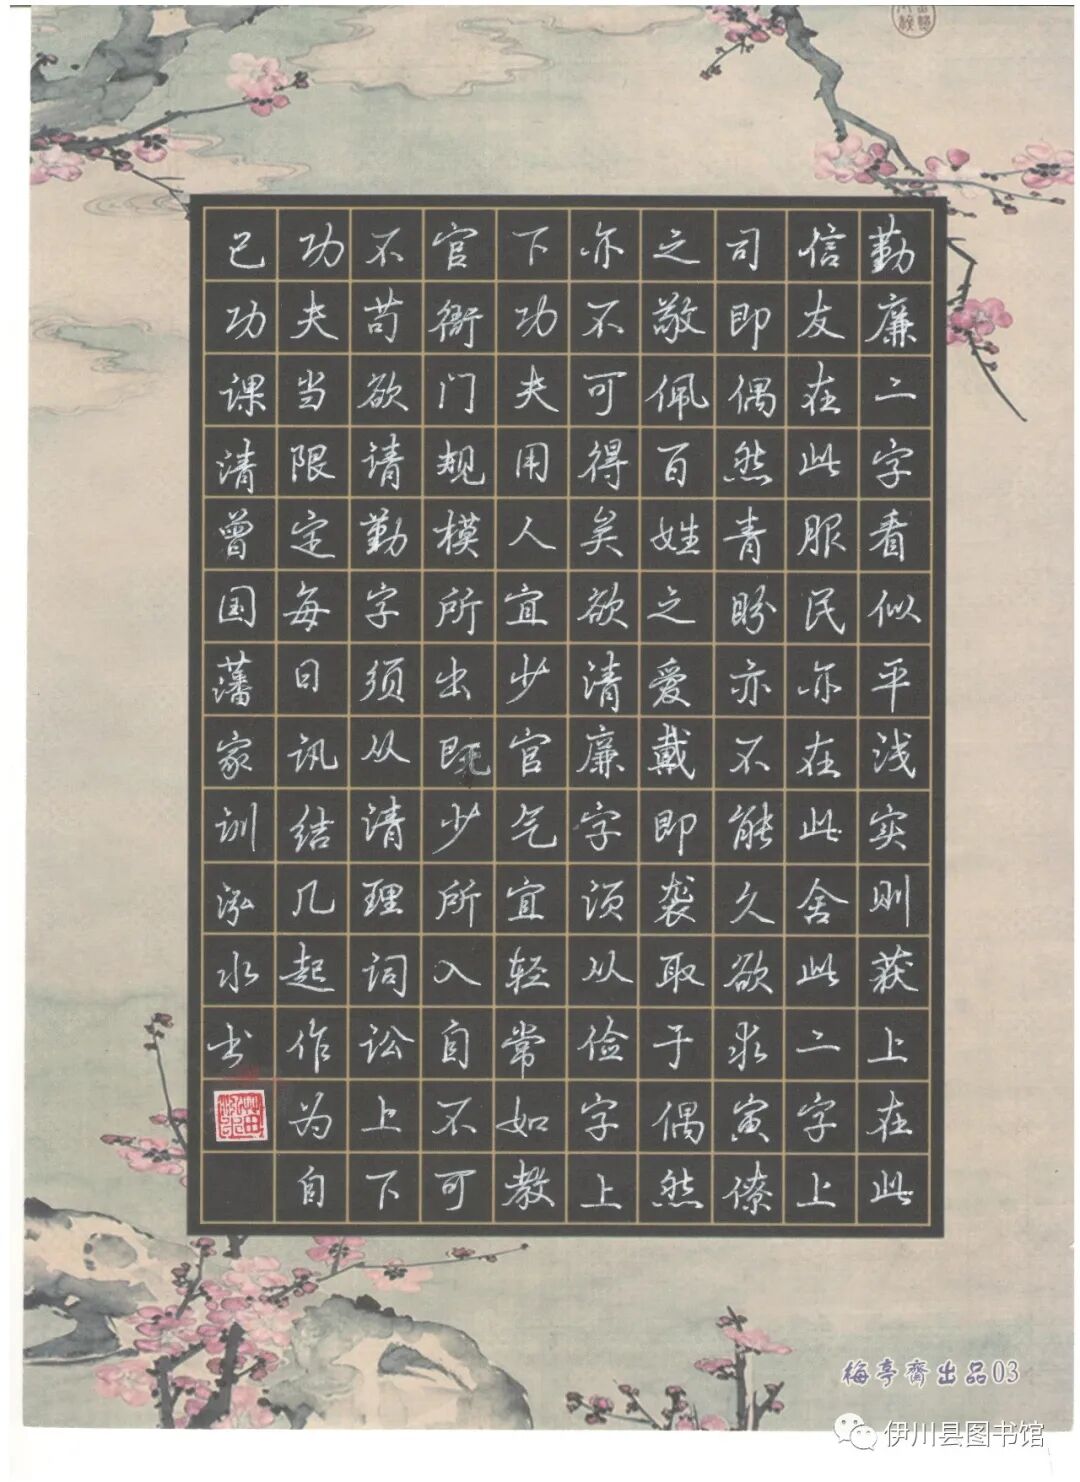 勤廉二字看似平浅实则获上在此
信友在此服民亦在此舍此二字上
司即偶然青盼亦不能久欲求寅僚
之敬佩百姓之爱戴即袭取于偶然
亦不可得矣欲清廉字须从俭字上
下功夫用人宜少官气宜轻常如教
官衙门规模所出既少所入自不可
不苟欲请勤字须从清理词讼上下
功夫当限定每日讯结几起作为自
已功课清曾国藩家训泓水书
梅亭齋出品03
伊川县图书馆